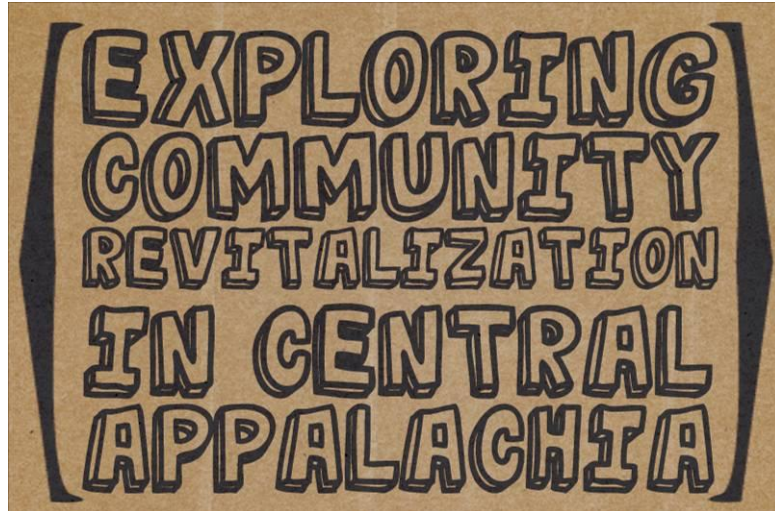 EXPLORING
COMMUNITY
REVITALIZATION
IN CENTRAL
APPALACHIA